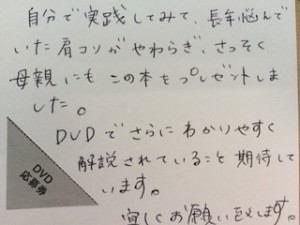 自分で実践してみて、長年悩んで
いた肩コリがやわらぎ、さっそく
母親にもこの本をプレゼントしま
した。
DVDでさらにわかりやすく
解説されていること期待して
います。
宜しくお願い致します。
DVD
応募券